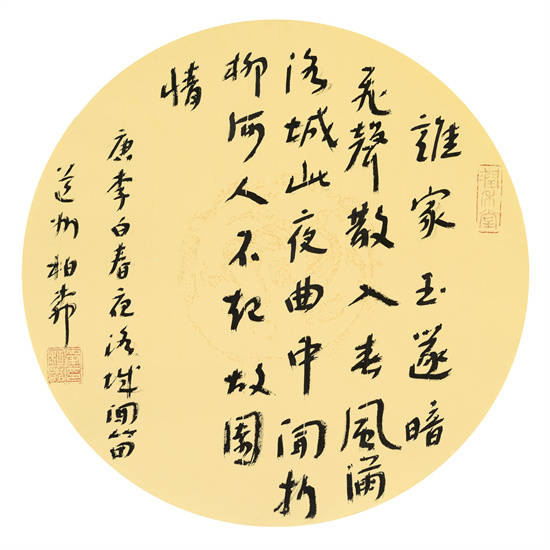 誰家玉篴暗
飛聲散入春風滿
洛城此夜曲中聞折
柳何人不起故園
情
唐李白春夜洛城聞笛
道州柏